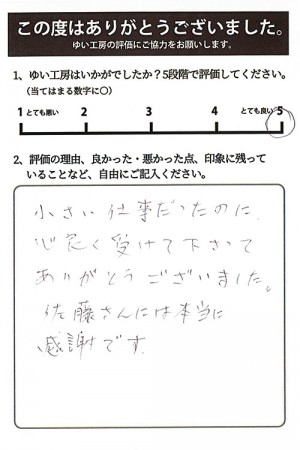 この度はありがとうございました。
ゆい工房の評価にご協力をお願いします。
1、ゆい工房はいかがでしたか？5段階で評価してください。
（当てはまる数字に〇）
1 とても悪い 2 3 4 とても良い 5
2、評価の理由、良かった・悪かった点、印象に残って
いることなど、自由にご記入ください。
小さい仕事だったのに、
心良く受けて下さって
ありがとうございました。
佐藤さんには本当に
感謝です。